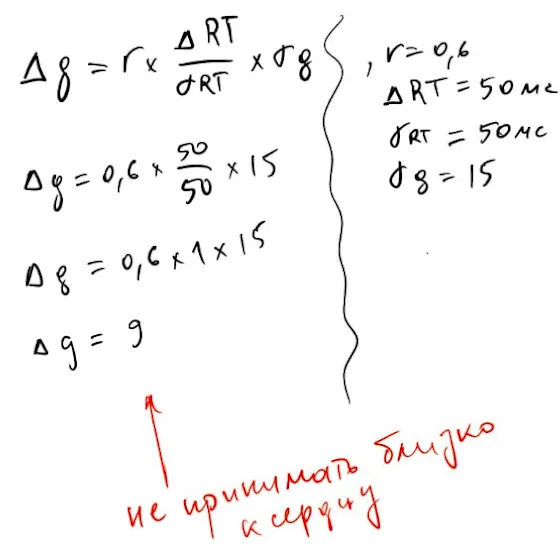 Δg = r × ΔRT/σRT × σg
Δg = 0,6 × 50/50 × 15
Δg = 0,6 × 1 × 15
Δg = 9
, r = 0,6
ΔRT = 50 мс
σRT = 50 мс
σg = 15
не принимать близко
к сердцу